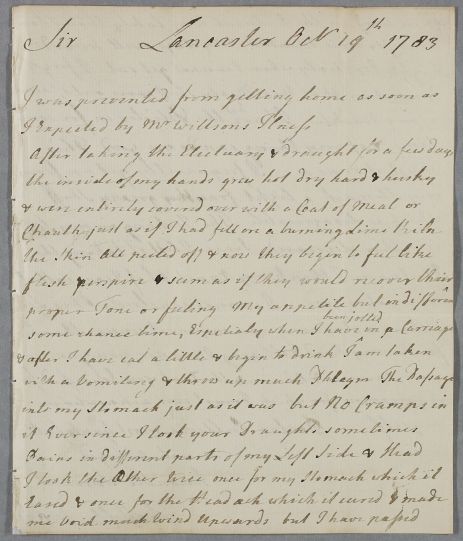 Sir Lancaster Oct 19th 1783
I was prevented from getting home as soon as
I Expected by Mr Willsons Ilness
After taking the Electuary & draught for a few days
the inside of my hands grew hot dry hard & huskey
& were entirely covered over with a Coat of Meal or
just as if I had fell on a burning Lime Kiln
the Skin All peeled off & now they begin to feel like
flesh perspire & seem as if they would recover their
proper Tone or feeling My appetite but indifferent
some chance time, Espetialy when I have been jolted in a Carriage
& after I have eat a little & begin to drink I am taken
with a Vomiting & throw up much Phlegm The Passage
into my Stomach just as it was but No Cramps in
it Ever since I took your Draughts sometimes
Pains in different parts of my Left Side & Head
I took the Other once for my Stomach which it
Eased & once for the Head ach which it cured & made
me Void much Wind Upwards but I have passed